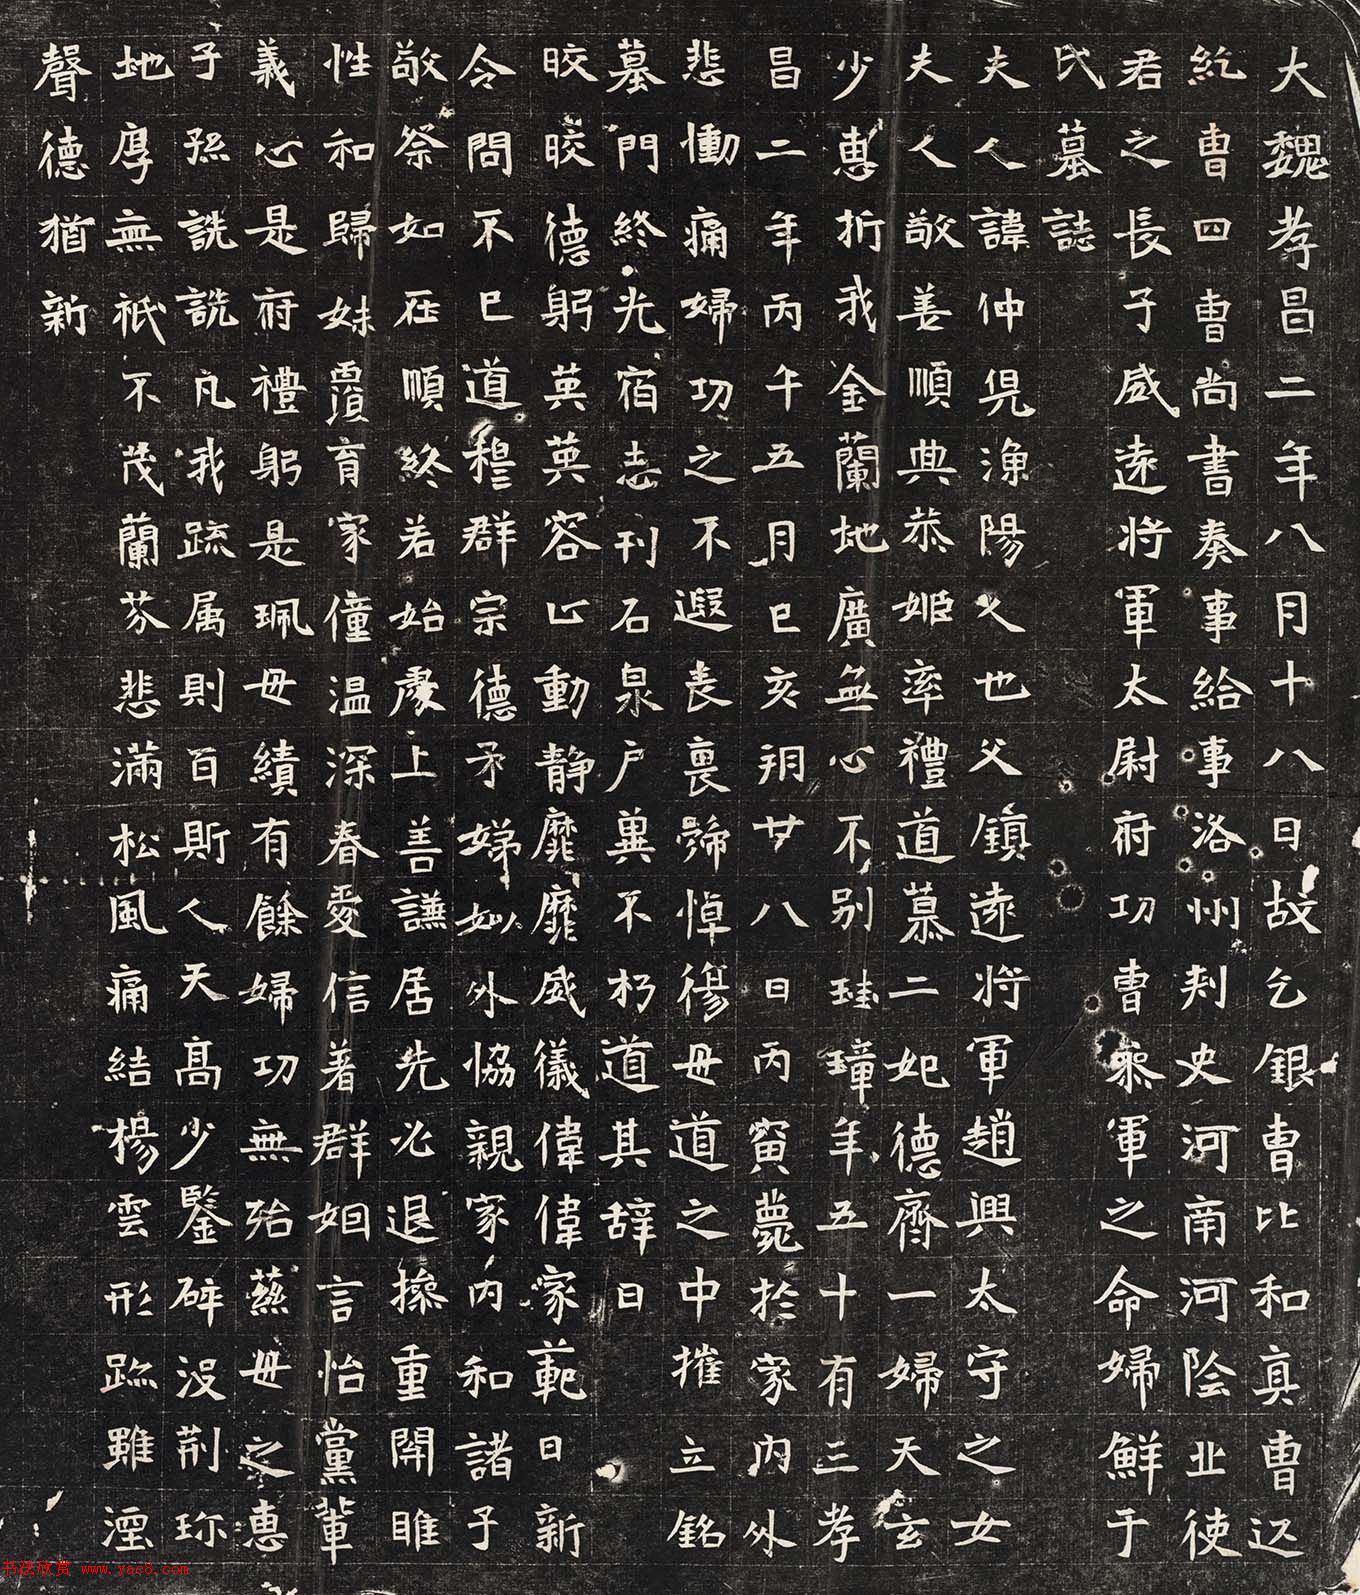 大魏孝昌二年八月十八日故乞銀曹比和真曹匹
紇曹四曹尚書奏事給事洛州刾史河南河陰北使
君之長子威遠将軍太尉府功曹叅軍之命婦鮮于
氏墓誌
夫人諱仲兒漁陽人也父鎮遠将軍趙興太守之女
夫人敬善順典恭姬率禮道慕二妃德齊一婦天玄
少惠折我金蘭地廣無心不別珪璋年五十有三孝
昌二年丙午五月己亥朔廿八日丙寅薨於家内外
悲慟痛婦功之不遐喪裏號悼傷毋道之中摧立銘
墓門終光宿志刊石泉户冀不朽道其辞曰
晈晈德躬英英容止動静靡靡威儀偉偉家範日新
令問不已道穆群宗德矛娣姒外恊親家内和諸子
敬祭如在順終若始處上善謙居先必退操重開睢
性和歸妹覆育家僮温深春愛信著群姻言怡黨輩
義心是府禮躬是珮毋績有餘婦功無殆慈毋之惠
子孫詵詵凡我疏属則百斯人天髙少鑒碎没荆珎
地厚無祇不茂蘭芬悲滿松風痛結楊雲形跡雖湮
聲德猶新
书法欣赏 www.yac8.com